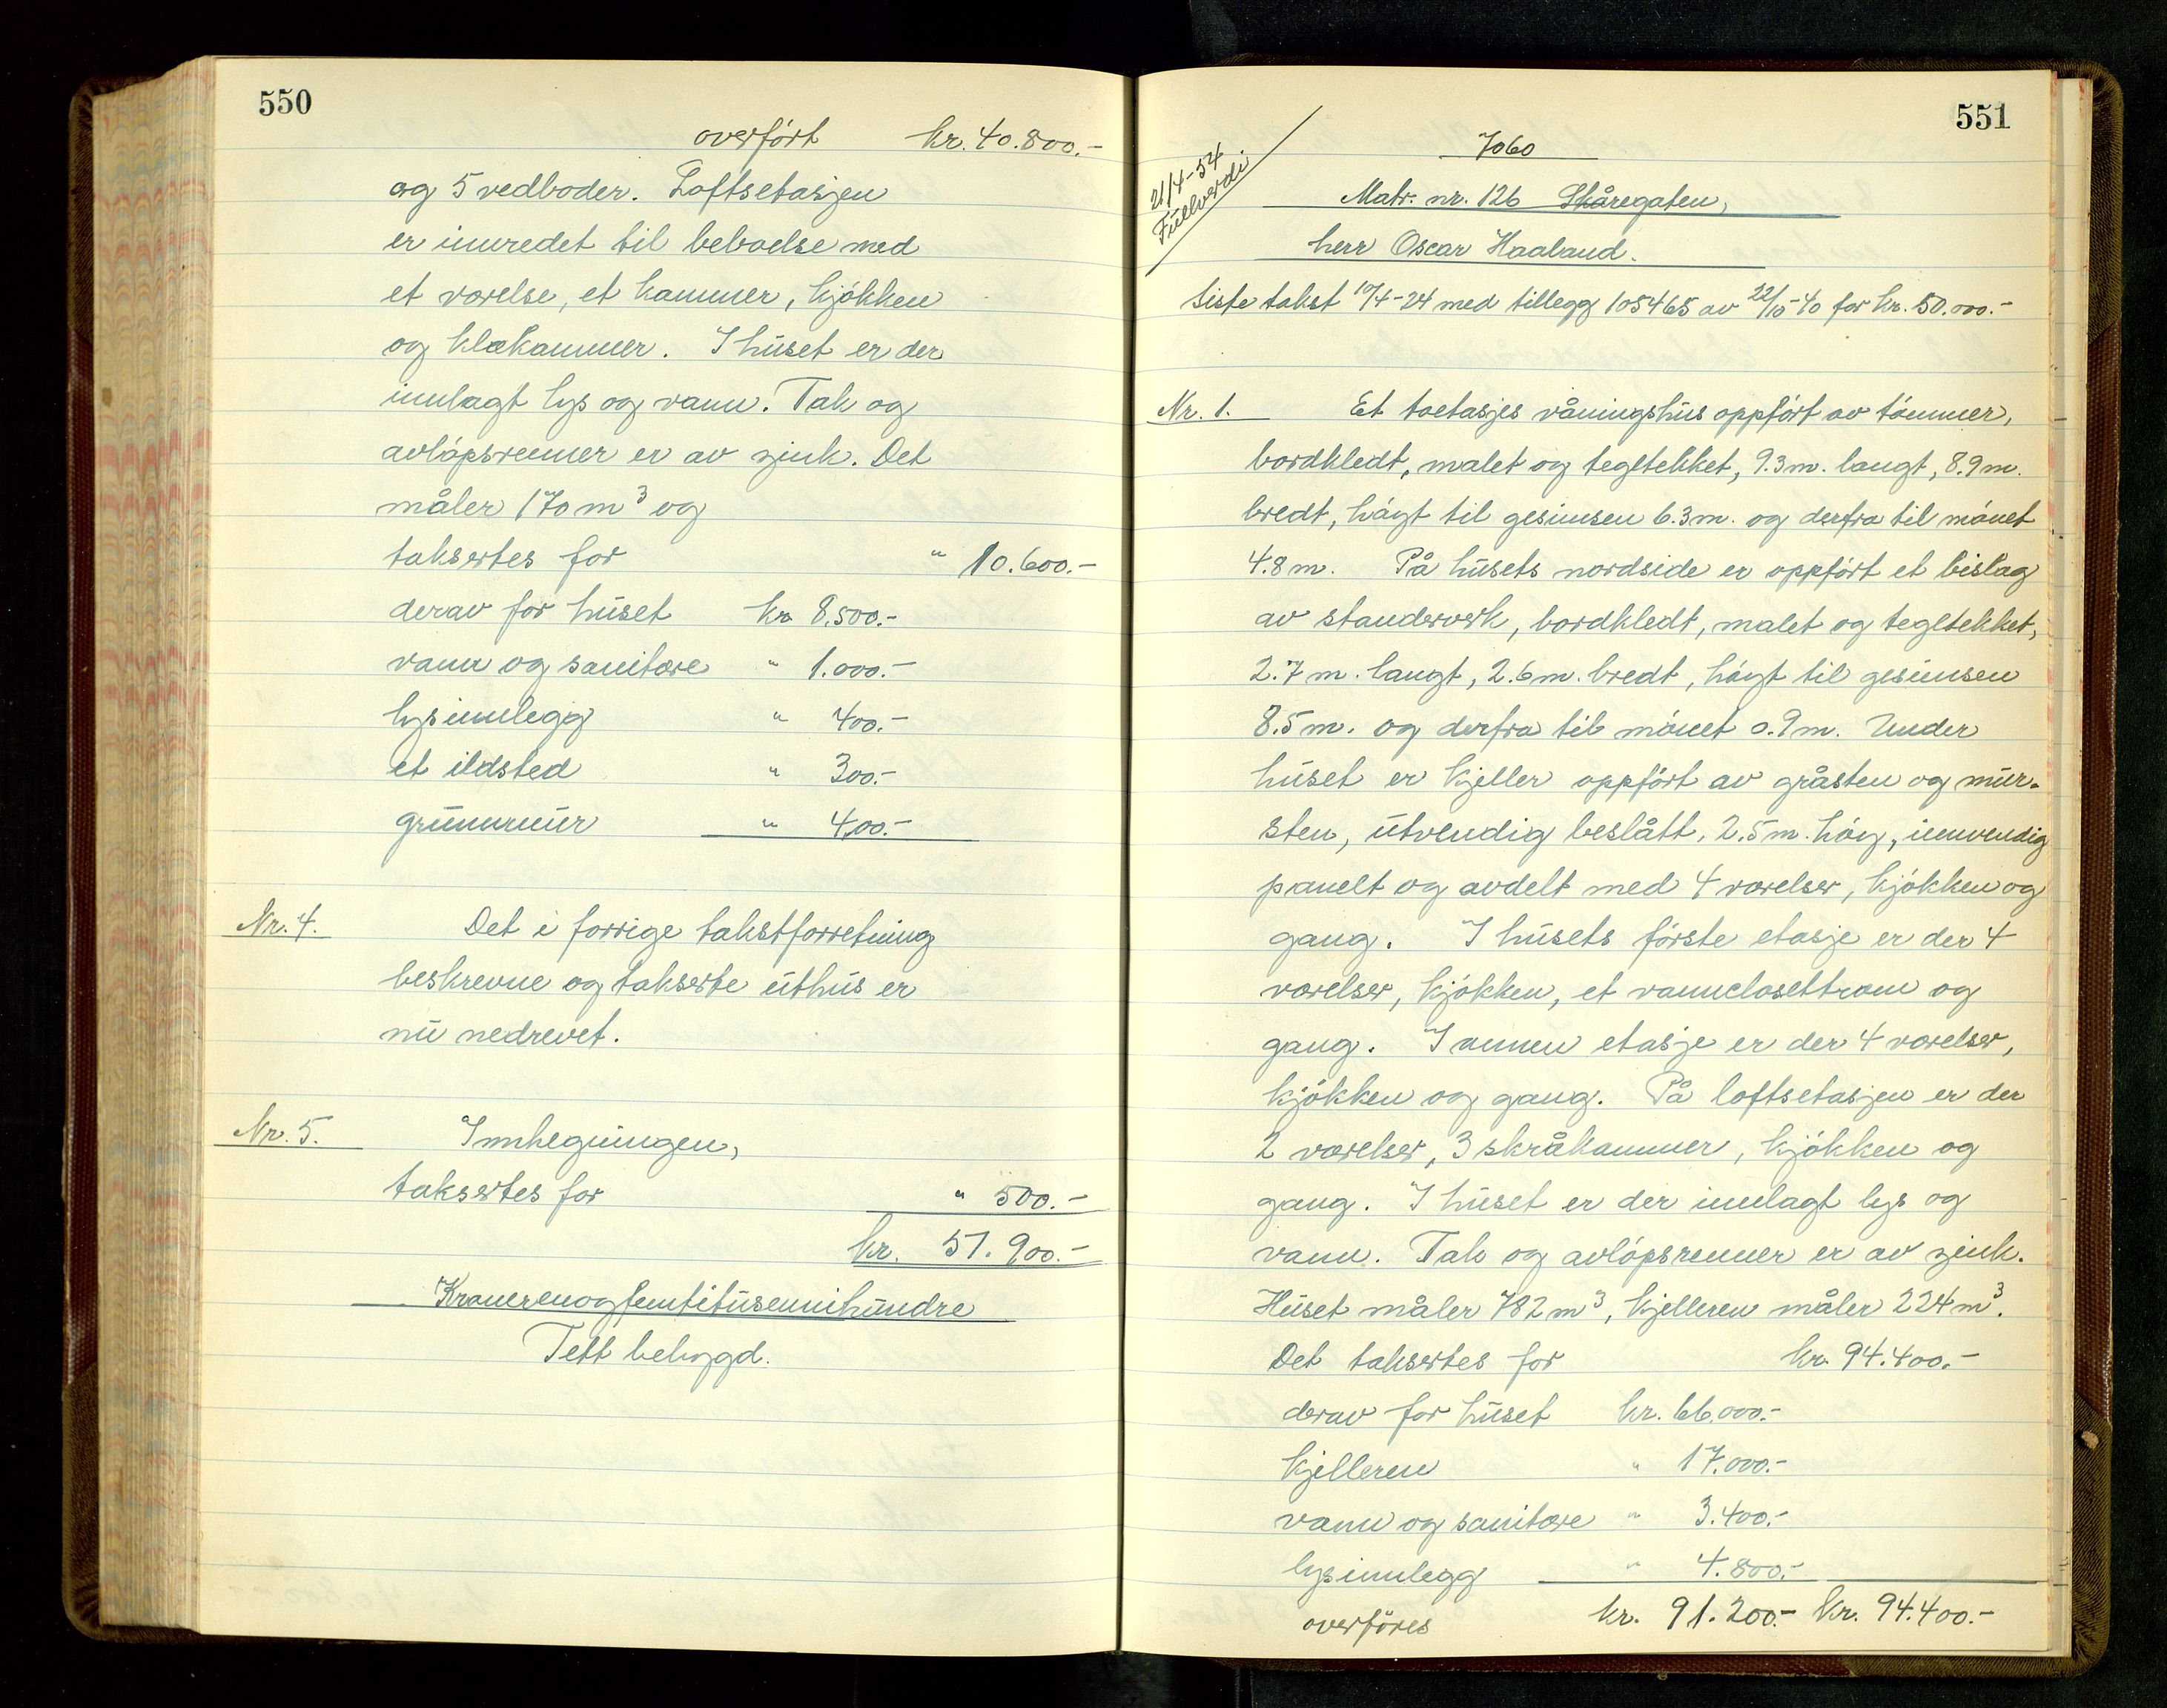 550
overført kr. 40.800.-
og 5 vedboder. Loftsetasjen
er innredet til beboelse med
et værelse, et kammer, kjøkken
og klækammer. I huset er der
innlagt lys og vann. Tak og
avløpsrenner er av zink. Det
måler 170 m³ og
takseres for " 10.600.-
derav for huset kr 8.500.-
vann og sanitære " 1.000.-
lysinnlegg " 400.-
et ildsted " 300.-
grunnmur " 400.-
Nr. 4. Det i forrige takstforretning
beskrevne og takserte uthus er
nu nedrevet.
Nr. 5. Innhegningen,
takseres for " 500.-
kr. 51.900.-
Kronerenogfemtitusennihundre
Tett bebygd.
551
21/4-54
Fullverdi
7060
Matr. nr. 126 Skåregaten,
herr Oscar Haaland.
Siste takst 10/4-24 med tillegg 105465 av 22/10-40 for kr. 50.000.-
Nr. 1. Et toetasjes våningshus oppført av tømmer,
bordkledt, malet og tegltekket, 9.3 m. langt, 8.9 m.
bredt, høgt til gesimsen 6.3 m. og derfra til mønet
4.8 m. På husets nordside er oppført et bislag
av standerverk, bordkledt, malet og tegltekket,
2.7 m. langt, 2.6 m. bredt, høgt til gesimsen
8.5 m. og derfra til mønet 0.9 m. Under
huset er kjeller oppført av gråsten og mur-
sten, utvendig beslått, 2.5 m. høg, innvendig
panelt og avdelt med 4 værelser, kjøkken og
gang. I husets første etasje er der 4
værelser, kjøkken, et vannclosettrom og
gang. I annen etasje er der 4 værelser,
kjøkken og gang. På loftsetasjen er der
2 værelser, 3 skråkammer, kjøkken og
gang. I huset er der innlagt lys og
vann. Tak og avløpsrenner er av zink.
Huset måler 782 m³, kjelleren måler 224 m³.
Det takseres for kr. 94.400.-
derav for huset kr. 66.000.-
kjelleren " 17.000.-
vann og sanitære " 3.400.-
lysinnlegg " 4.800.-
overføres kr. 91.200.- kr. 94.400.-